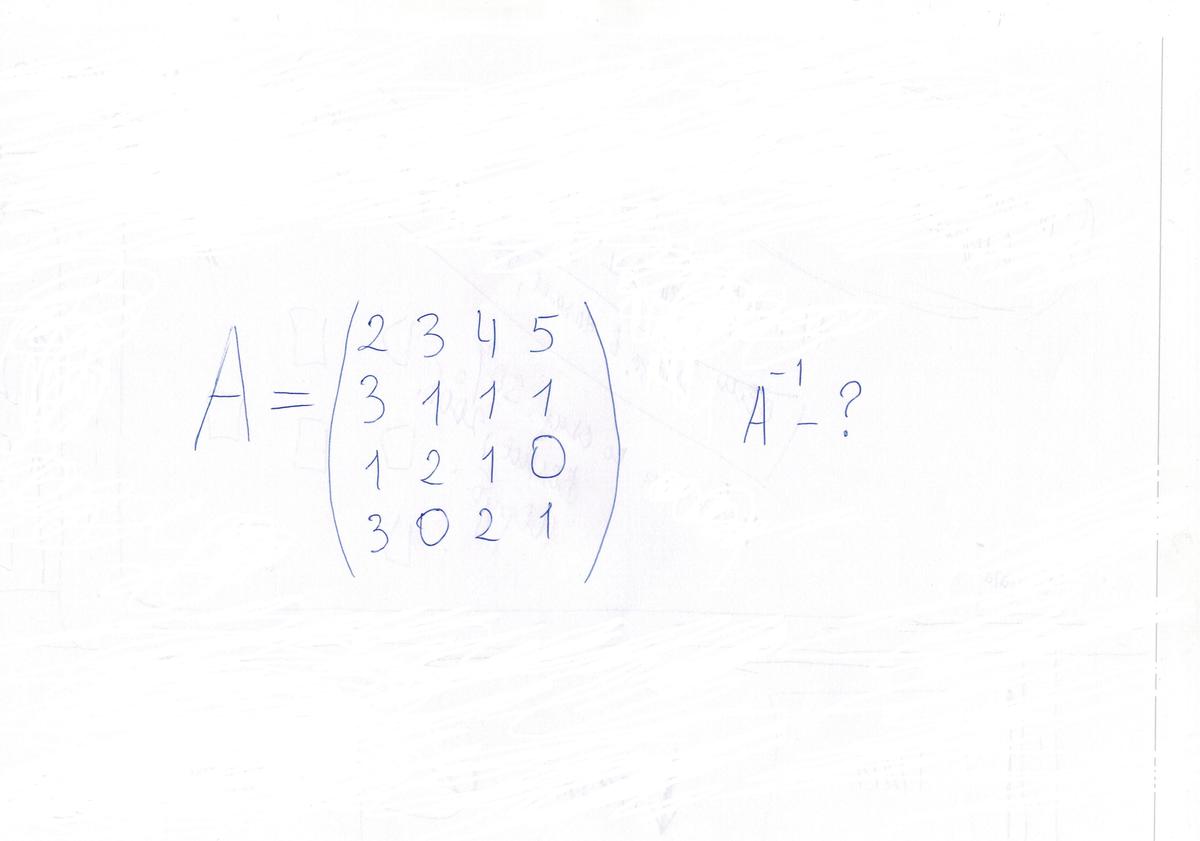 A = ( 2 3 4 5
3 1 1 1
1 2 1 0
3 0 2 1 )
A⁻¹ - ?